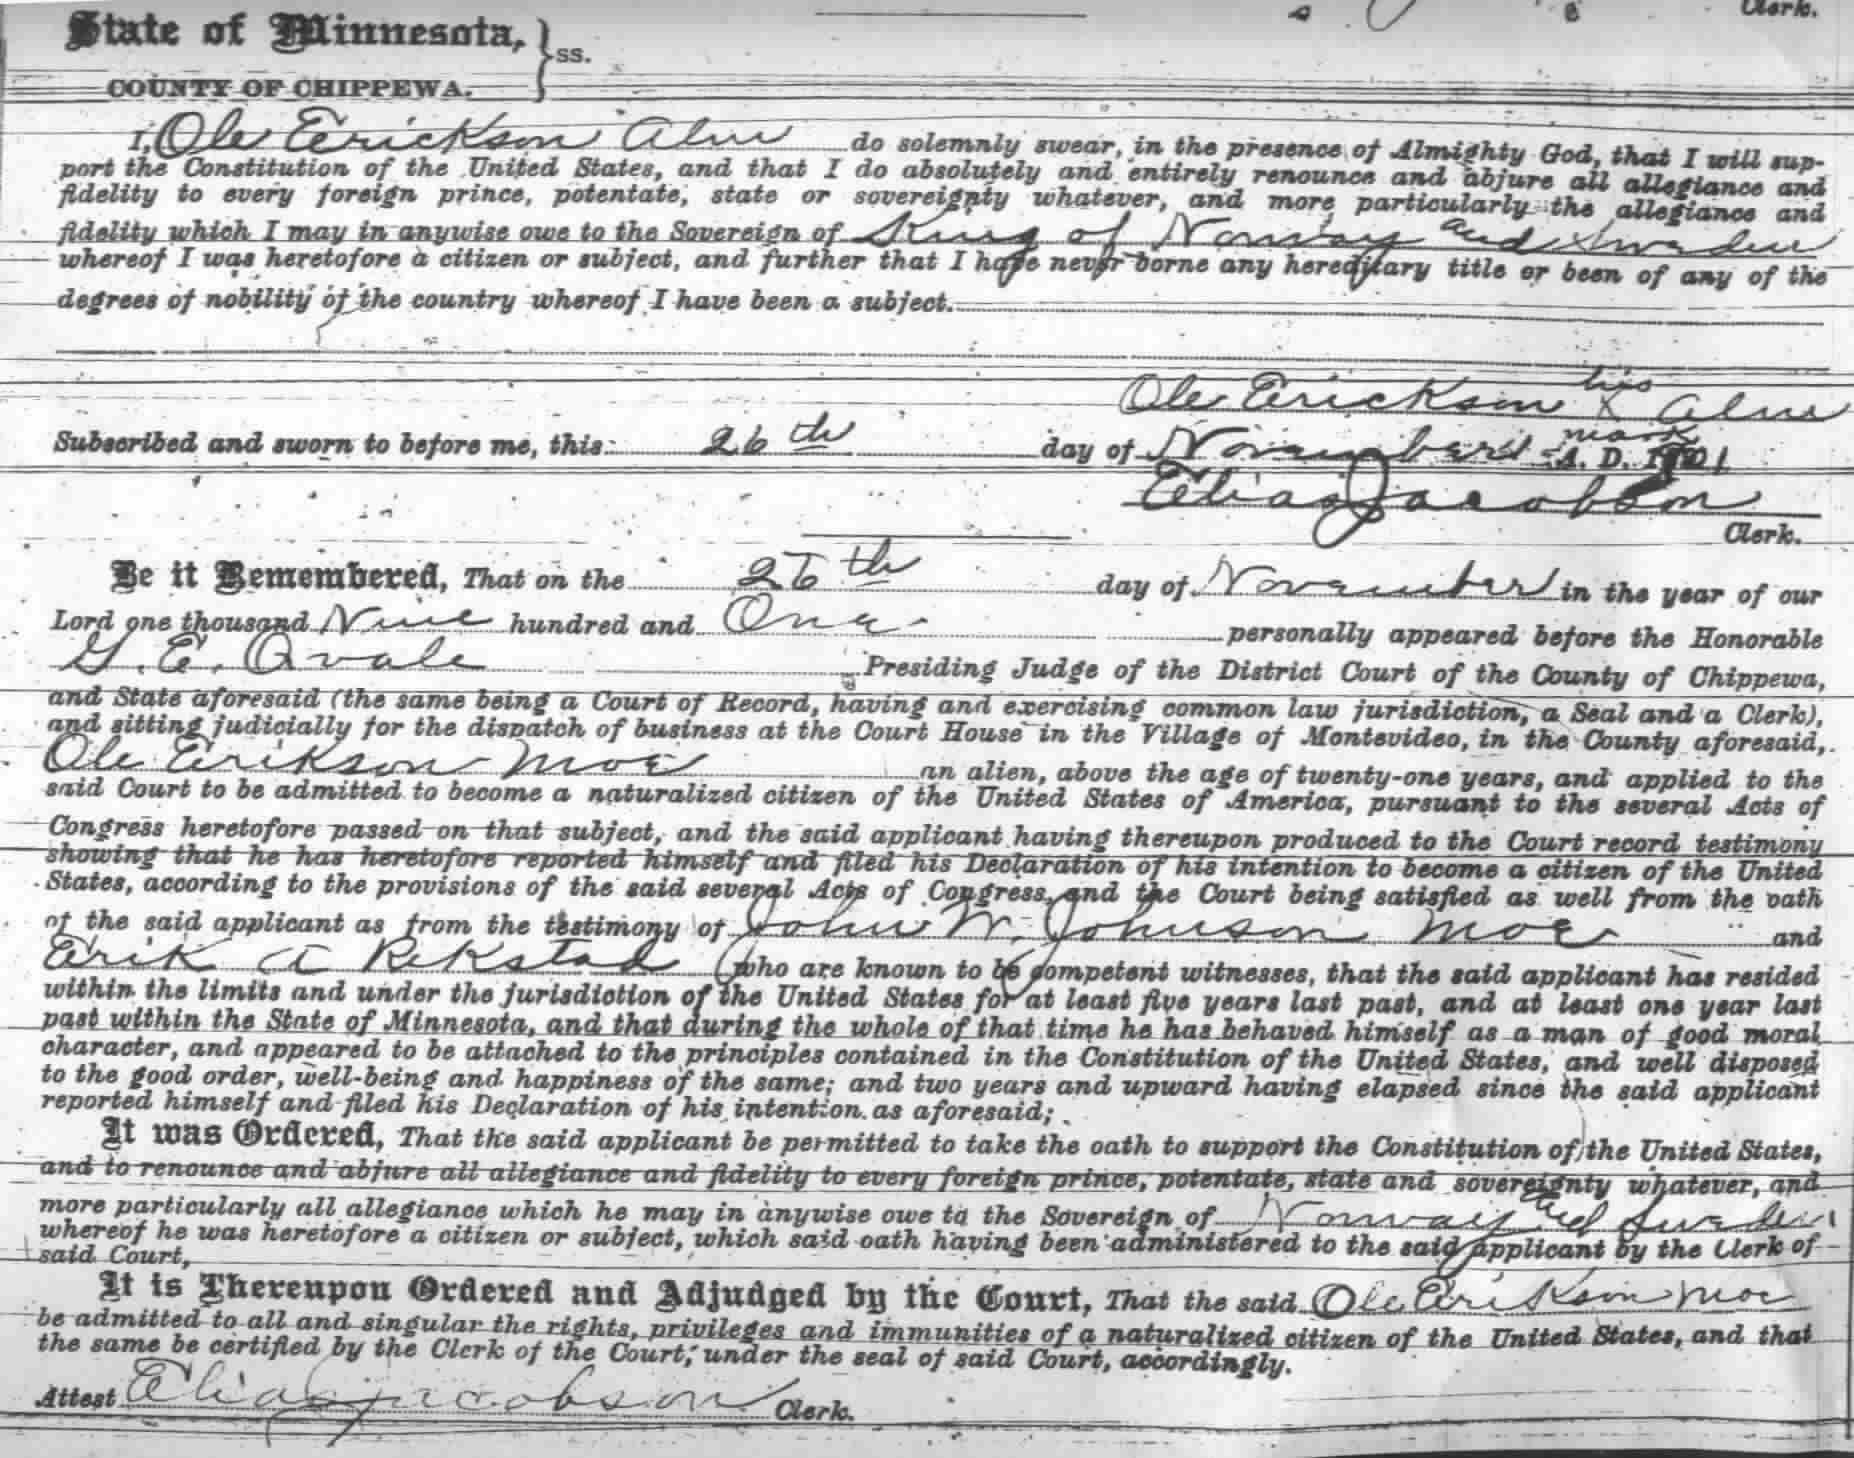 Clerk.
State of Minnesota, } ss.
COUNTY OF CHIPPEWA.
I, Ole Erickson Alm do solemnly swear, in the presence of Almighty God, that I will sup-
port the Constitution of the United States, and that I do absolutely and entirely renounce and abjure all allegiance and
fidelity to every foreign prince, potentate, state or sovereignty whatever, and more particularly the allegiance and
fidelity which I may in anywise owe to the Sovereign of King of Norway and Sweden
whereof I was heretofore a citizen or subject, and further that I have never borne any hereditary title or been of any of the
degrees of nobility of the country whereof I have been a subject.
Ole Erickson his x mark Alm
Subscribed and sworn to before me, this 26th day of November A. D. 1901
Elias Jacobson
Clerk.
Be it Remembered, That on the 26th day of November in the year of our
Lord one thousand Nine hundred and One personally appeared before the Honorable
G. E. Qvale Presiding Judge of the District Court of the County of Chippewa,
and State aforesaid (the same being a Court of Record, having and exercising common law jurisdiction, a Seal and a Clerk),
and sitting judicially for the dispatch of business at the Court House in the Village of Montevideo, in the County aforesaid,
Ole Erikson Moe an alien, above the age of twenty-one years, and applied to the
said Court to be admitted to become a naturalized citizen of the United States of America, pursuant to the several Acts of
Congress heretofore passed on that subject, and the said applicant having thereupon produced to the Court record testimony
showing that he has heretofore reported himself and filed his Declaration of his intention to become a citizen of the United
States, according to the provisions of the said several Acts of Congress, and the Court being satisfied as well from the oath
of the said applicant as from the testimony of John W. Johnson Moe and
Erik A Rekstad who are known to be competent witnesses, that the said applicant has resided
within the limits and under the jurisdiction of the United States for at least five years last past, and at least one year last
past within the State of Minnesota, and that during the whole of that time he has behaved himself as a man of good moral
character, and appeared to be attached to the principles contained in the Constitution of the United States, and well disposed
to the good order, well-being and happiness of the same; and two years and upward having elapsed since the said applicant
reported himself and filed his Declaration of his intention as aforesaid;
It was Ordered, That the said applicant be permitted to take the oath to support the Constitution of the United States,
and to renounce and abjure all allegiance and fidelity to every foreign prince, potentate, state and sovereignty whatever, and
more particularly all allegiance which he may in anywise owe to the Sovereign of Norway and Sweden
whereof he was heretofore a citizen or subject, which said oath having been administered to the said applicant by the Clerk of
said Court,
It is Thereupon Ordered and Adjudged by the Court, That the said Ole Erikson Moe
be admitted to all and singular the rights, privileges and immunities of a naturalized citizen of the United States, and that
the same be certified by the Clerk of the Court, under the seal of said Court, accordingly.
Attest Elias Jacobson Clerk.